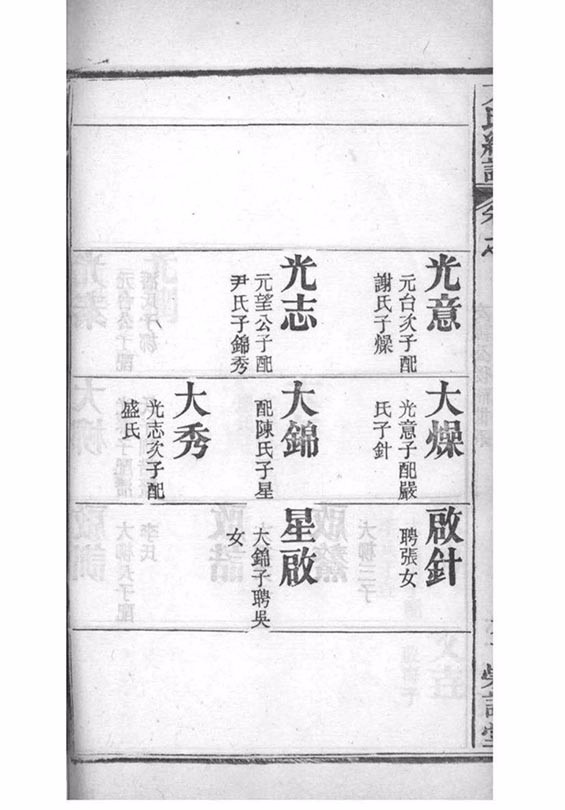 光意
元台次子配
謝氏子燥
光志
元望公子配
尹氏子錦秀
大燥
光意子配嚴
氏子針
大錦
配陳氏子星
大秀
光志次子配
盛氏
啟針
聘張女
星啟
大錦子聘吳
女